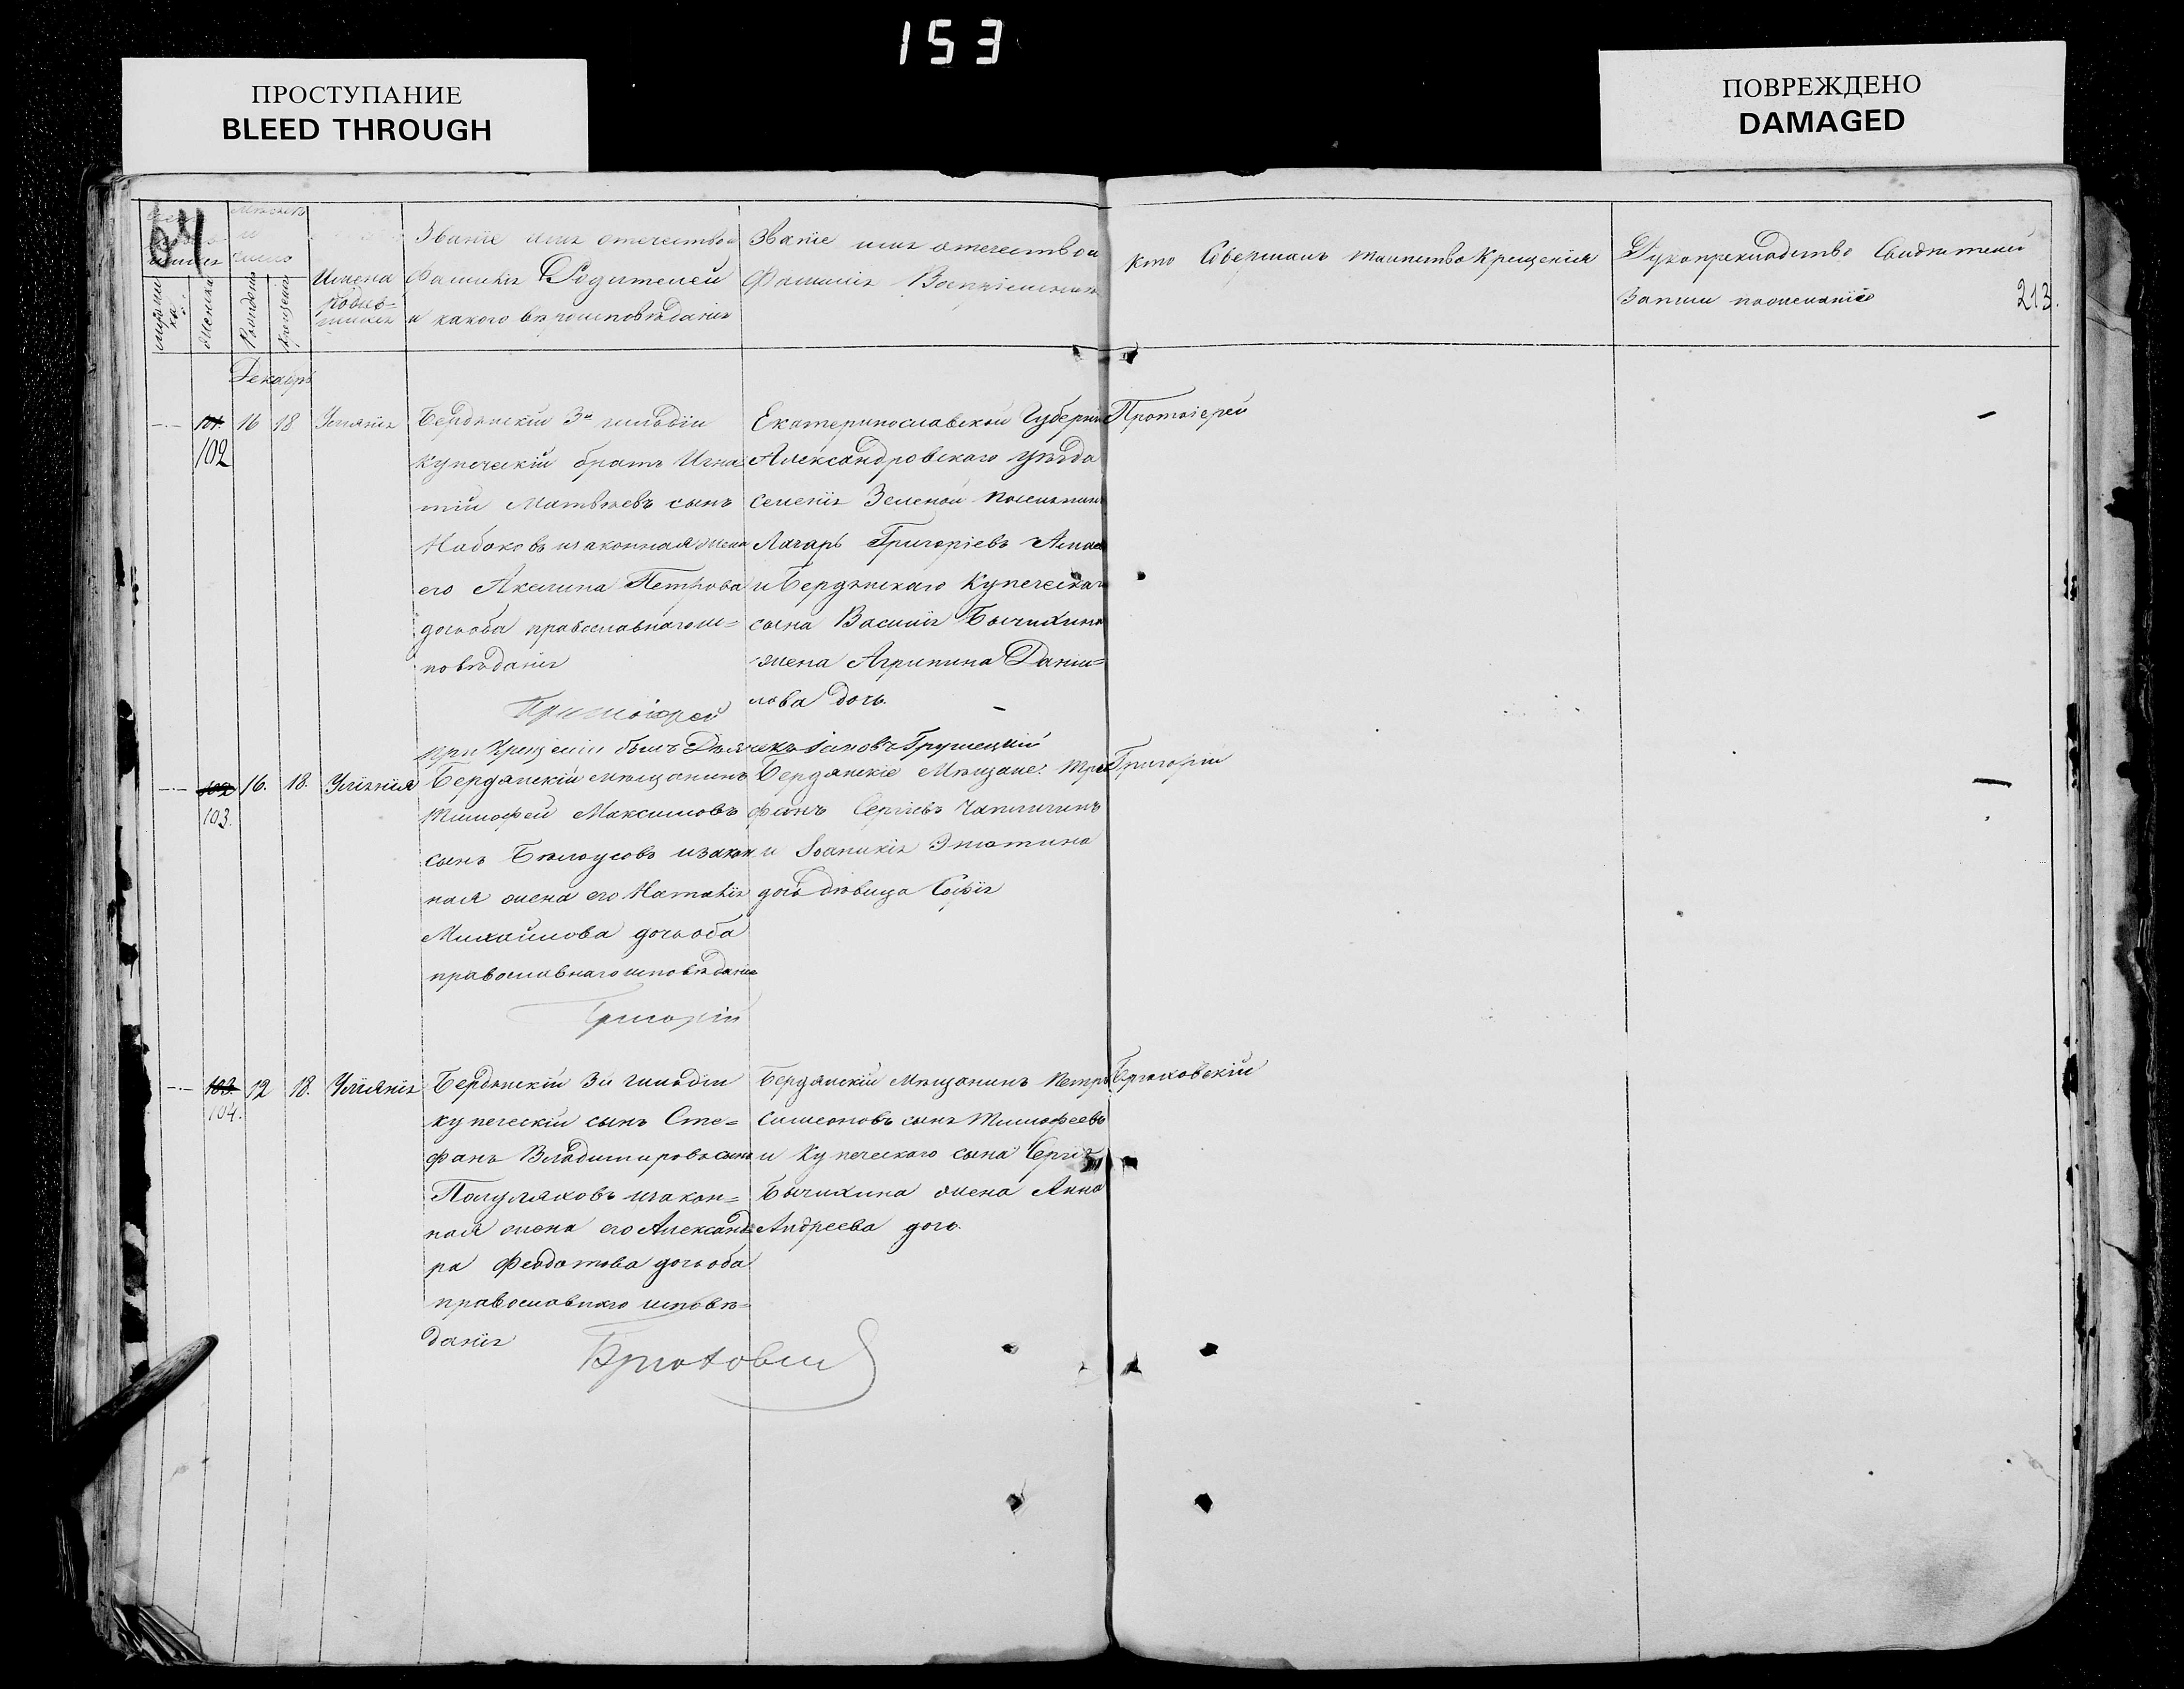 153
ПРОСТУПАНИЕ
BLEED THROUGH
ПОВРЕЖДЕНО
DAMAGED
64
Мѣсяцъ
и
число
Имена
родив-
шихся
Званіе имя отечество и
Фамилія Родителей
и какого вѣроисповѣданія
Званіе имя отечество и
Фамилія Воспріемниковъ
Кто Совершалъ таинство Крещенія
Рукоприкладство Свидѣтелей
Записи по желанію
213.
Декабрь
101. 16 18 Уліянія
102
Бердянскій 3й гильдіи
купеческій братъ Игна
тій Матвѣевъ сынъ
Набоковъ и законная жена
его Акилина Петрова
дочь оба православнаго ис=
повѣданія
Протоіерей
Екатеринославской Губерніи
Александровскаго уѣзда
селенія Зеленой поселянинъ
Лазарь Григоріевъ
и Бердянскаго Купеческаго
сына Василія Бычихина
жена Агрипина Даніи=
лова дочь.
Протоіерей
при Крещеніи былъ Дьячекъ
102 16. 18. Уліянія
103.
Бердянскій мѣщанинъ
Тимофей Максимовъ
сынъ Бѣлоусовъ и закон
ная жена его Наталія
Михайлова дочь оба
православнаго исповѣданія
Григорій
Бердянскіе Мѣщане: Три
фонъ Сергіевъ Чаплыгинъ
и Іоаникія
дочь дѣвица Софія
Григорій
103. 12 18. Уліянія
104.
Бердянскій 3й гильдіи
купеческій сынъ Сте=
фанъ Владимировъ сынъ
Полуляховъ и закон=
ная жена его Александ
ра Феодотова дочь оба
православнаго исповѣ=
данія
Брюховскі
Бердянскій Мѣщанинъ Петръ
Симеоновъ сынъ Тимофеевъ
и Купеческаго сына Сергія
Бычихина жена Анна
Андреева дочь.
Брюховскій